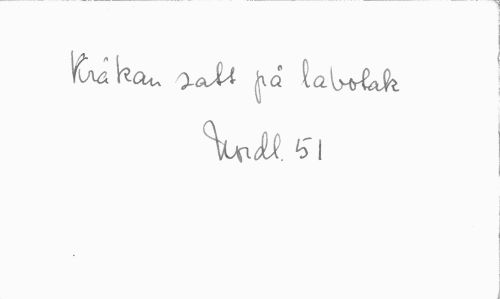 Kråkan satt på labotak
Nordl. 51